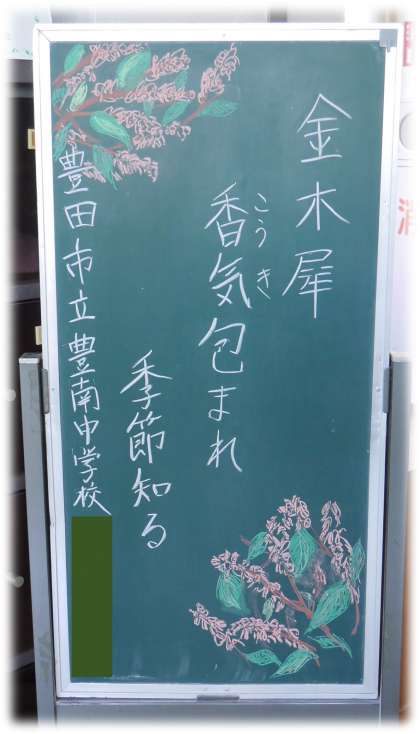 金木犀
香気包まれ
こうき
季節知る
豊田市立豊南中学校